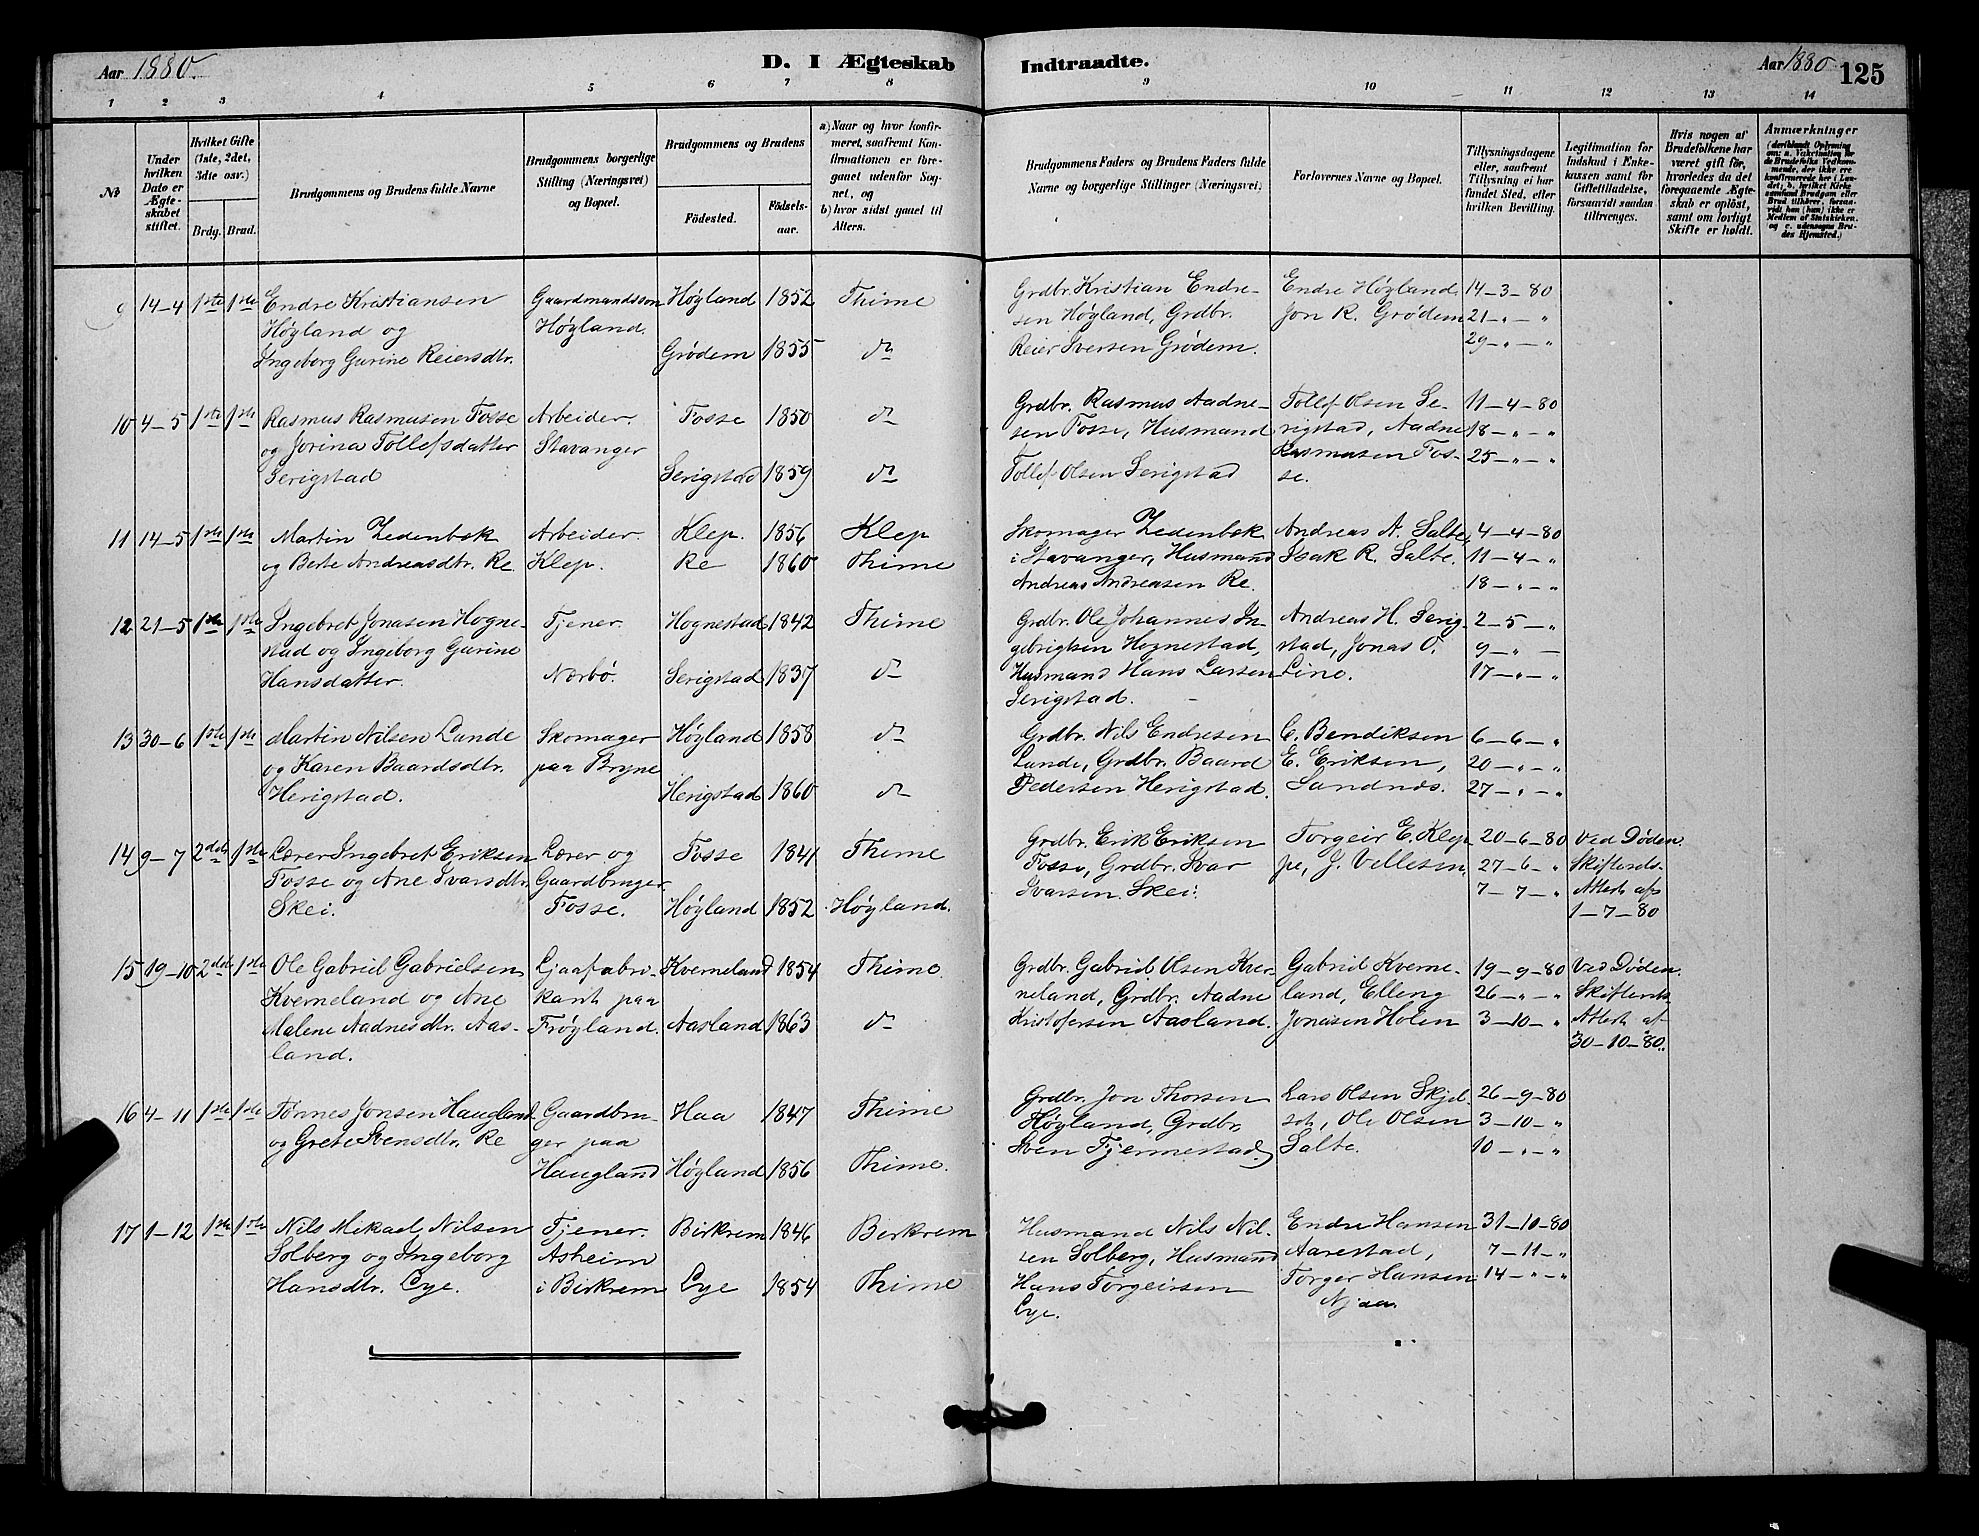 Aar 1880.
D. I Ægteskab Indtraadte.
Aar 1880 125
1 2 3 4 5 6 7 8 9 10 11 12 13 14
№
Under hvilken Dato er Ægteskabet stiftet.
Hvilket Gifte (1ste, 2det, 3die osv.)
Brdg. Brud.
Brudgommens og Brudens fulde Navne
Brudgommens borgerlige Stilling (Næringsvei) og Bopæl.
Brudgommens og Brudens
Födested. Födselsaar.
a) Naar og hvor konfirmeret, saafremt Konfirmationen er foregaaet udenfor Sognet, og
b) hvor sidst gaaet til Alters.
Brudgommens Faders og Brudens Faders fulde Navne og borgerlige Stillinger (Næringsvei)
Forlovernes Navne og Bopæl.
Tillysningsdagene eller, saafremt Tillysning ei har fundet Sted, efter hvilken Bevilling.
Legitimation for Indskud i Enkekassen samt for Giftetilladelse, forsaavidt saadan tiltrænges.
Hvis nogen af Brudefolkene har været gift för, hvorledes da det foregaaende Ægteskab er oplöst, samt om lovligt Skifte er holdt.
Anmærkninger
9 14–4 1ste 1ste Endre Kristiansen Gaardmandssøn Høyland 1852 Thime
Høyland og Høyland.
Ingeborg Gurine Reiersdtr. Grødem 1855 do
Grdbr. Kristian Endre- Endre Høyland, 14–3–80
sen Høyland, Grdbr. Jon R. Grødem 21–"–"
Reier Iversen Grødem. 29–"–"
10 4–5 1ste 1ste Rasmus Rasmusen Fosse Arbeider. Fosse 1850 do
og Jorina Tollefsdatter Stavanger
Serigstad Serigstad 1859 do
Grdbr. Rasmus Aadne- Tollef Olsen Se- 11–4–80
sen Fosse, Husmand rigstad, Aadne 18–"–"
Tollef Olsen Serigstad Rasmusen Fos- 25–"–"
se.
11 14–5 1ste 1ste Martin Zedenbok Arbeider. Klep. 1856 Klep
og Berte Andreasdtr. Re Klep. Re 1860 Thime
Skomager Zedenbok Andreas A. Salte, 4–4–80
i Stavanger, Husmand Isak R. Salte. 11–4–"
Andreas Andreasen Re. 18–"–"
12 21–5 1ste 1ste Ingebret Jonasen Hogne- Tjener. Hognestad 1842 Thime
stad og Ingeborg Gurine
Hansdatter. Nærbø. Serigstad 1837 do
Grdbr. Ole Johannes In- Andreas H. Serig- 2–5–"
gebrigtsen Hognestad, stad, Jonas O. 9–"–
Husmand Hans Larsen Line. 17–"–"
Serigstad.
13 30–6 1ste 1ste Martin Nilsen Lunde Skomager Høyland 1858 do
og Karen Baardsdtr. paa Bryne
Herigstad. Herigstad 1860 do
Grdbr. Nils Endresen C. Bendiksen 6–6–"
Lunde, Grdbr. Baard E. Eriksen, 20–"–"
Pedersen Herigstad. Sandnes. 27–"–"
14 9–7 2det 1ste Lærer Ingebret Eriksen Lærer og Fosse 1841 Thime
Fosse og Ane Ivarsdtr. Gaardbruger
Skei. Fosse. Høyland 1852 Høyland.
Grdbr. Erik Eriksen Torgeir E. Klep- 20–6–80 Ved Døden.
Fosse, Grdbr. Ivar pe, J. Vellesen. 27–6–" Skifterets-
Ivarsen Skei. 7–7–" Attest af
1–7–80
15 19–10 2det 1ste Ole Gabriel Gabrielsen Ljaafabri- Kverneland 1854 Thime.
Kverneland og Ane kant paa
Malene Aadnesdtr. Aas- Frøyland. Aasland 1863 do
land.
Grdbr. Gabriel Olsen Kver- Gabriel Kverne- 19–9–80 Ved Døden.
neland, Grdbr. Aadne land, Elleng 26–"–" Skifterets
Kristofersen Aasland. Jonasen Holen 3–10–" Attest af
30–10–80.
16 4–11 1ste 1ste Tønnes Jonsen Haugland Gaardbru- Haa 1847 Thime
og Grete Svensdtr. Re ger paa
Haugland Høyland 1856 Thime.
Grdbr. Jon Thorsen Lars Olsen Skjel- 26–9–80
Høyland, Grdbr. Ole Olsen 3–10–"
Sven Fjermestad. Salte. 10–"–"
17 1–12 1ste 1ste Nils Mikael Nilsen Tjener. Birkrem 1846 Birkrem
Solberg og Ingeborg Asheim
Hansdtr. Lye. i Birkrem Lye 1854 Thime
Husmand Nils Nil- Endre Hansen 31–10–80
sen Solberg, Husmand Aarestad, 7–11–"
Hans Torgeirsen Torger Hansen 14–"–"
Lye. Njaa.